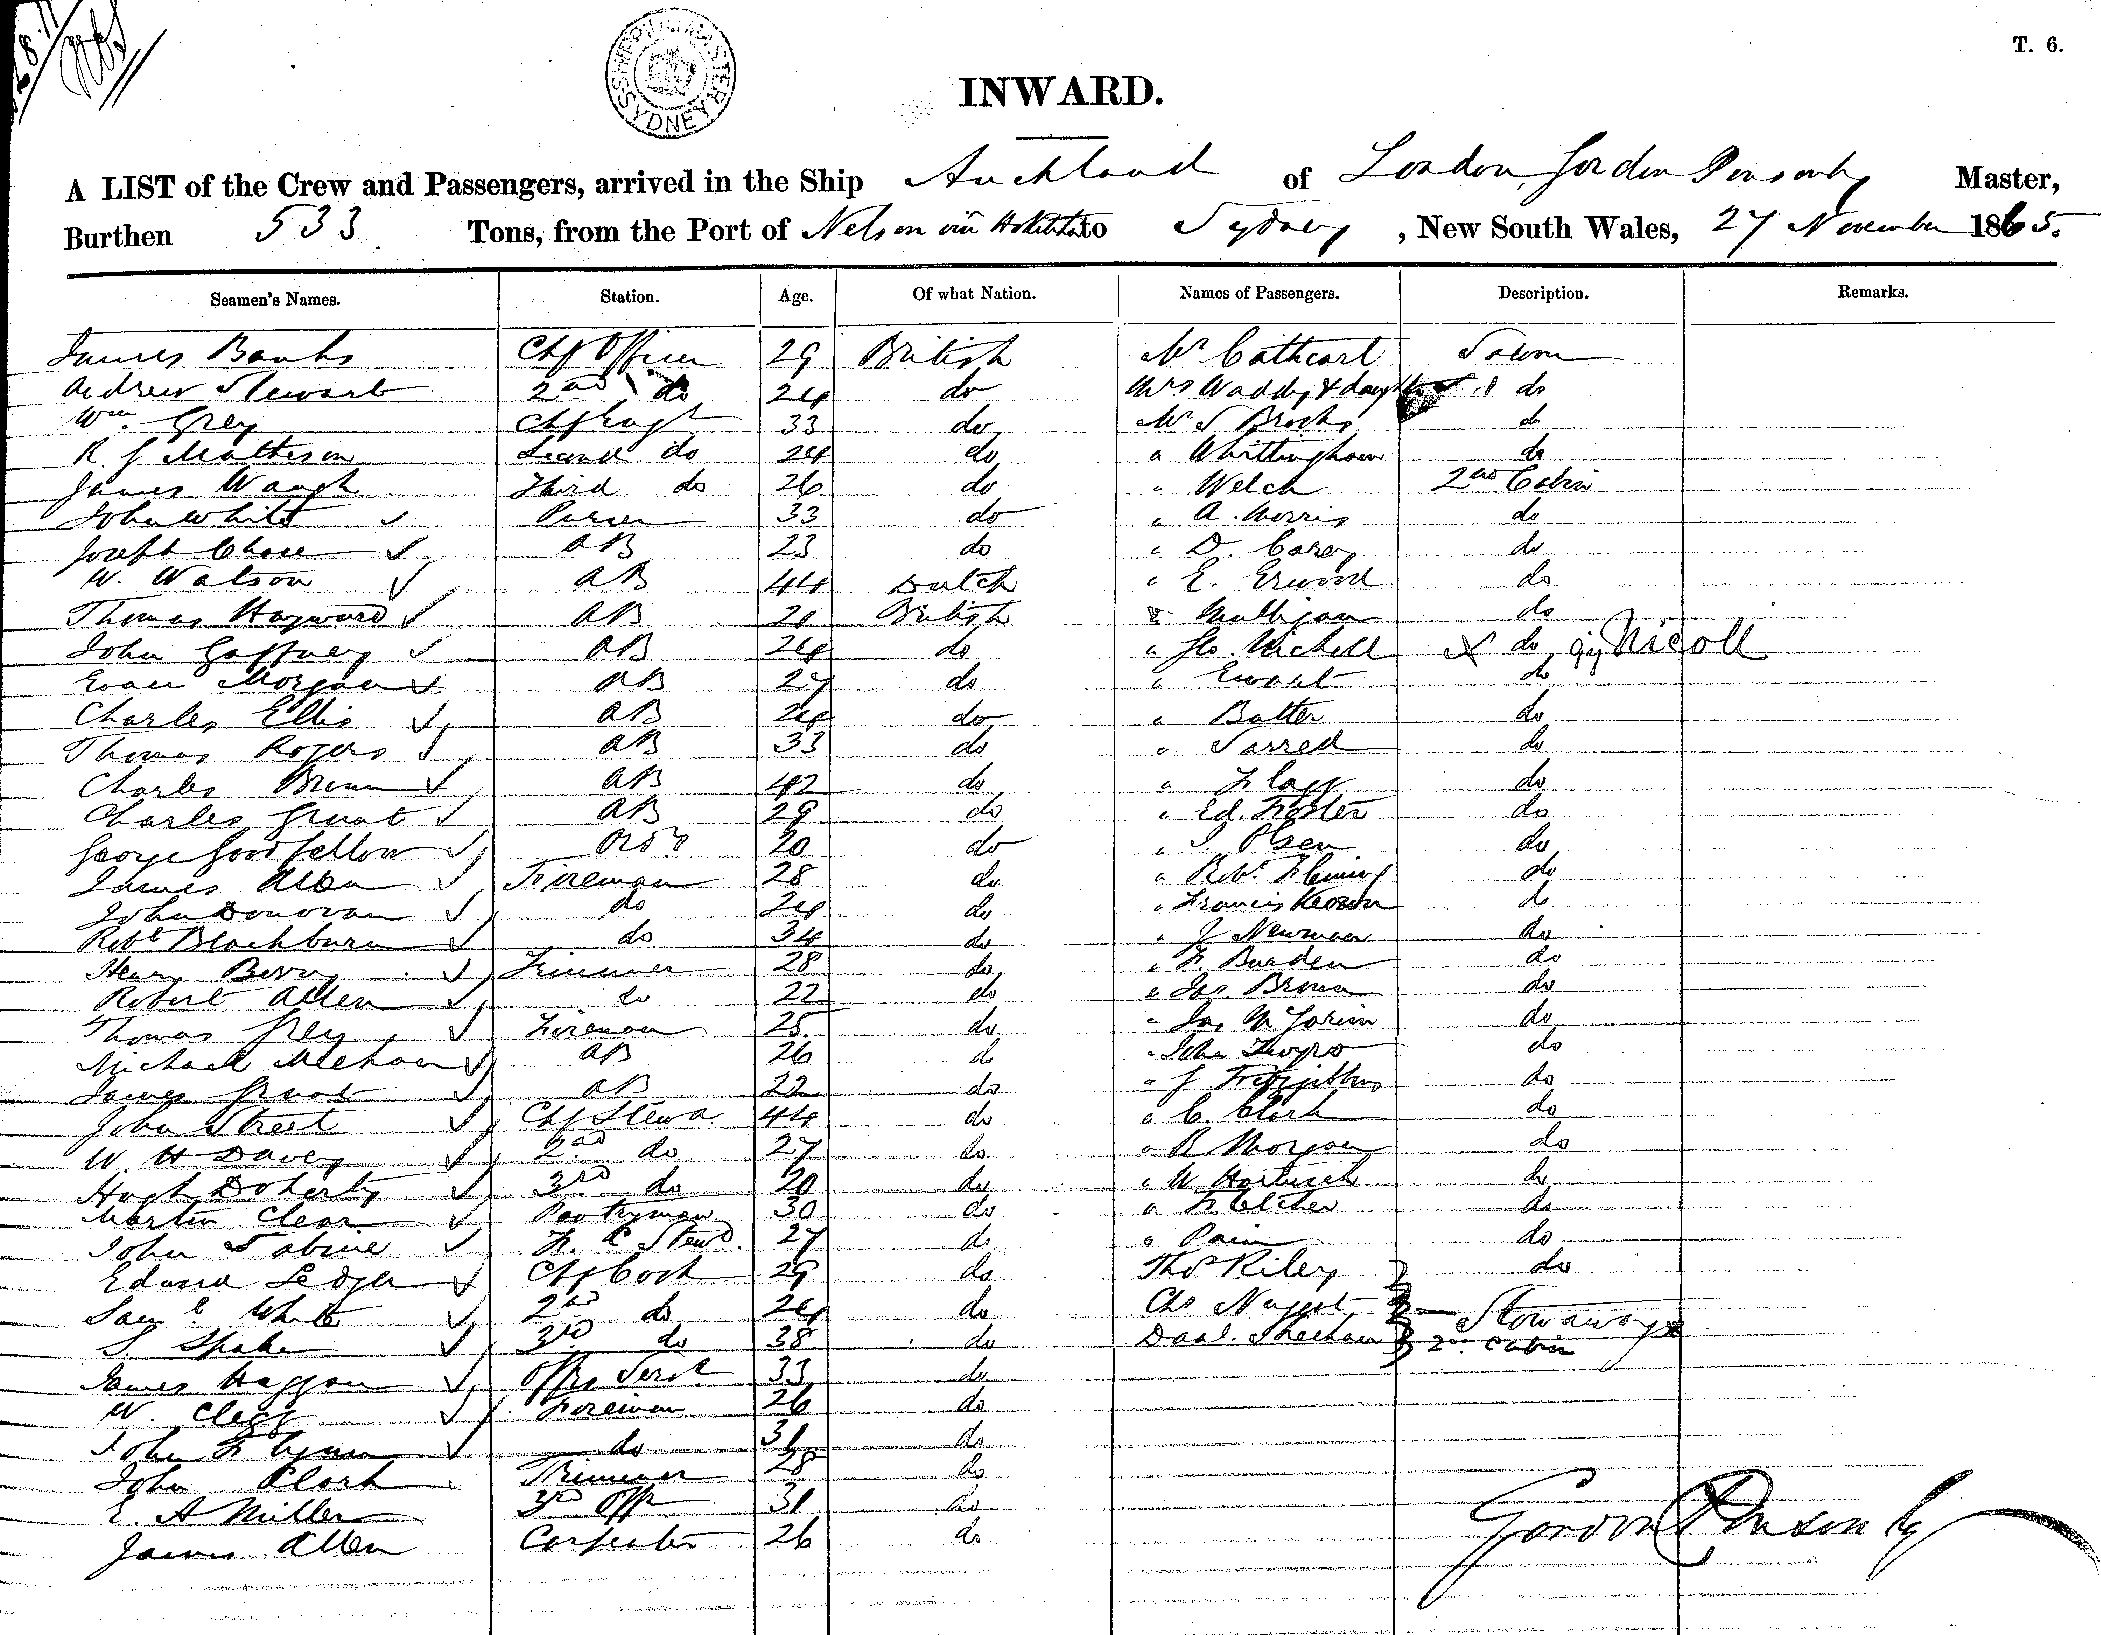 T. 6.
SHIPPING MASTER SYDNEY
INWARD.
A LIST of the Crew and Passengers, arrived in the Ship Auckland of London, Gordon Ponsonby Master,
Burthen 533 Tons, from the Port of Nelson via Hokitika to Sydney, New South Wales, 27 November 1865.
Seamen's Names. Station. Age. Of what Nation. Names of Passengers. Description. Remarks.
James Banks Chf Officer 29 British Mr Cathcart Saloon
Andrew Stewart 2nd do 24 do Mrs Waddy & daughter do
Wm. Grey Chf Engr 33 do Mr S Brooks do
R. J Matheson Second do 24 do " Whittingham do
James Waugh Third do 26 do " Welch 2nd Cabin
John White Purser 33 do " A. Morris do
Joseph Chase AB 23 do " D. Carey do
W. Watson AB 44 Dutch " E. Erwood do
Thomas Hayward AB 21 British " Mulligan do
John Gaffney AB 24 do " Geo. Nichell X do Nicoll
Evan Morgan AB 27 do " Ewart do
Charles Ellis AB 24 do " Butler do
Thomas Rogers AB 33 do " Jarred do
Charles Brown AB 42 do " Flagg do
Charles Grant AB 29 do " Ed. Foster do
George Goodfellow Ord 20 do " Olsen do
James Allen Fireman 28 do " Robt. Fleming do
John Donovan do 24 do " Francis do
Robt Blackburn do 34 do " J Newman do
Henry Berry Trimmer 28 do " F. Burden do
Robert Allen do 22 do " Jas. Brown do
Thomas Grey Fireman 25 do " Jas. do
Michael Meehan AB 26 do " John do
James Grant AB 22 do " J do
John Street Chf Stewd 44 do " C. Clark do
W. H Davey 2nd do 27 do " R Morgan do
Hugh Doherty 3rd do 20 do " W do
Martin Clear Pantryman 30 do " Fletcher do
John Sabine F. C Stewd. 27 do " Pain do
Edward Ledger Chf Cook 29 do Thos Riley do
Saml White 2nd do 24 do Chs Nugent Stowaways
S. Spake 3rd do 38 do Danl. Sheehan 2nd Cabin
James Haggan Offrs Servt 33 do
W. Clegg Fireman 26 do
John Flynn do 31 do
John Clark Trimmer 28 do
E. A Miller 3rd Offr 31 do
James Allen Carpenter 26 do
Gordon Ponsonby